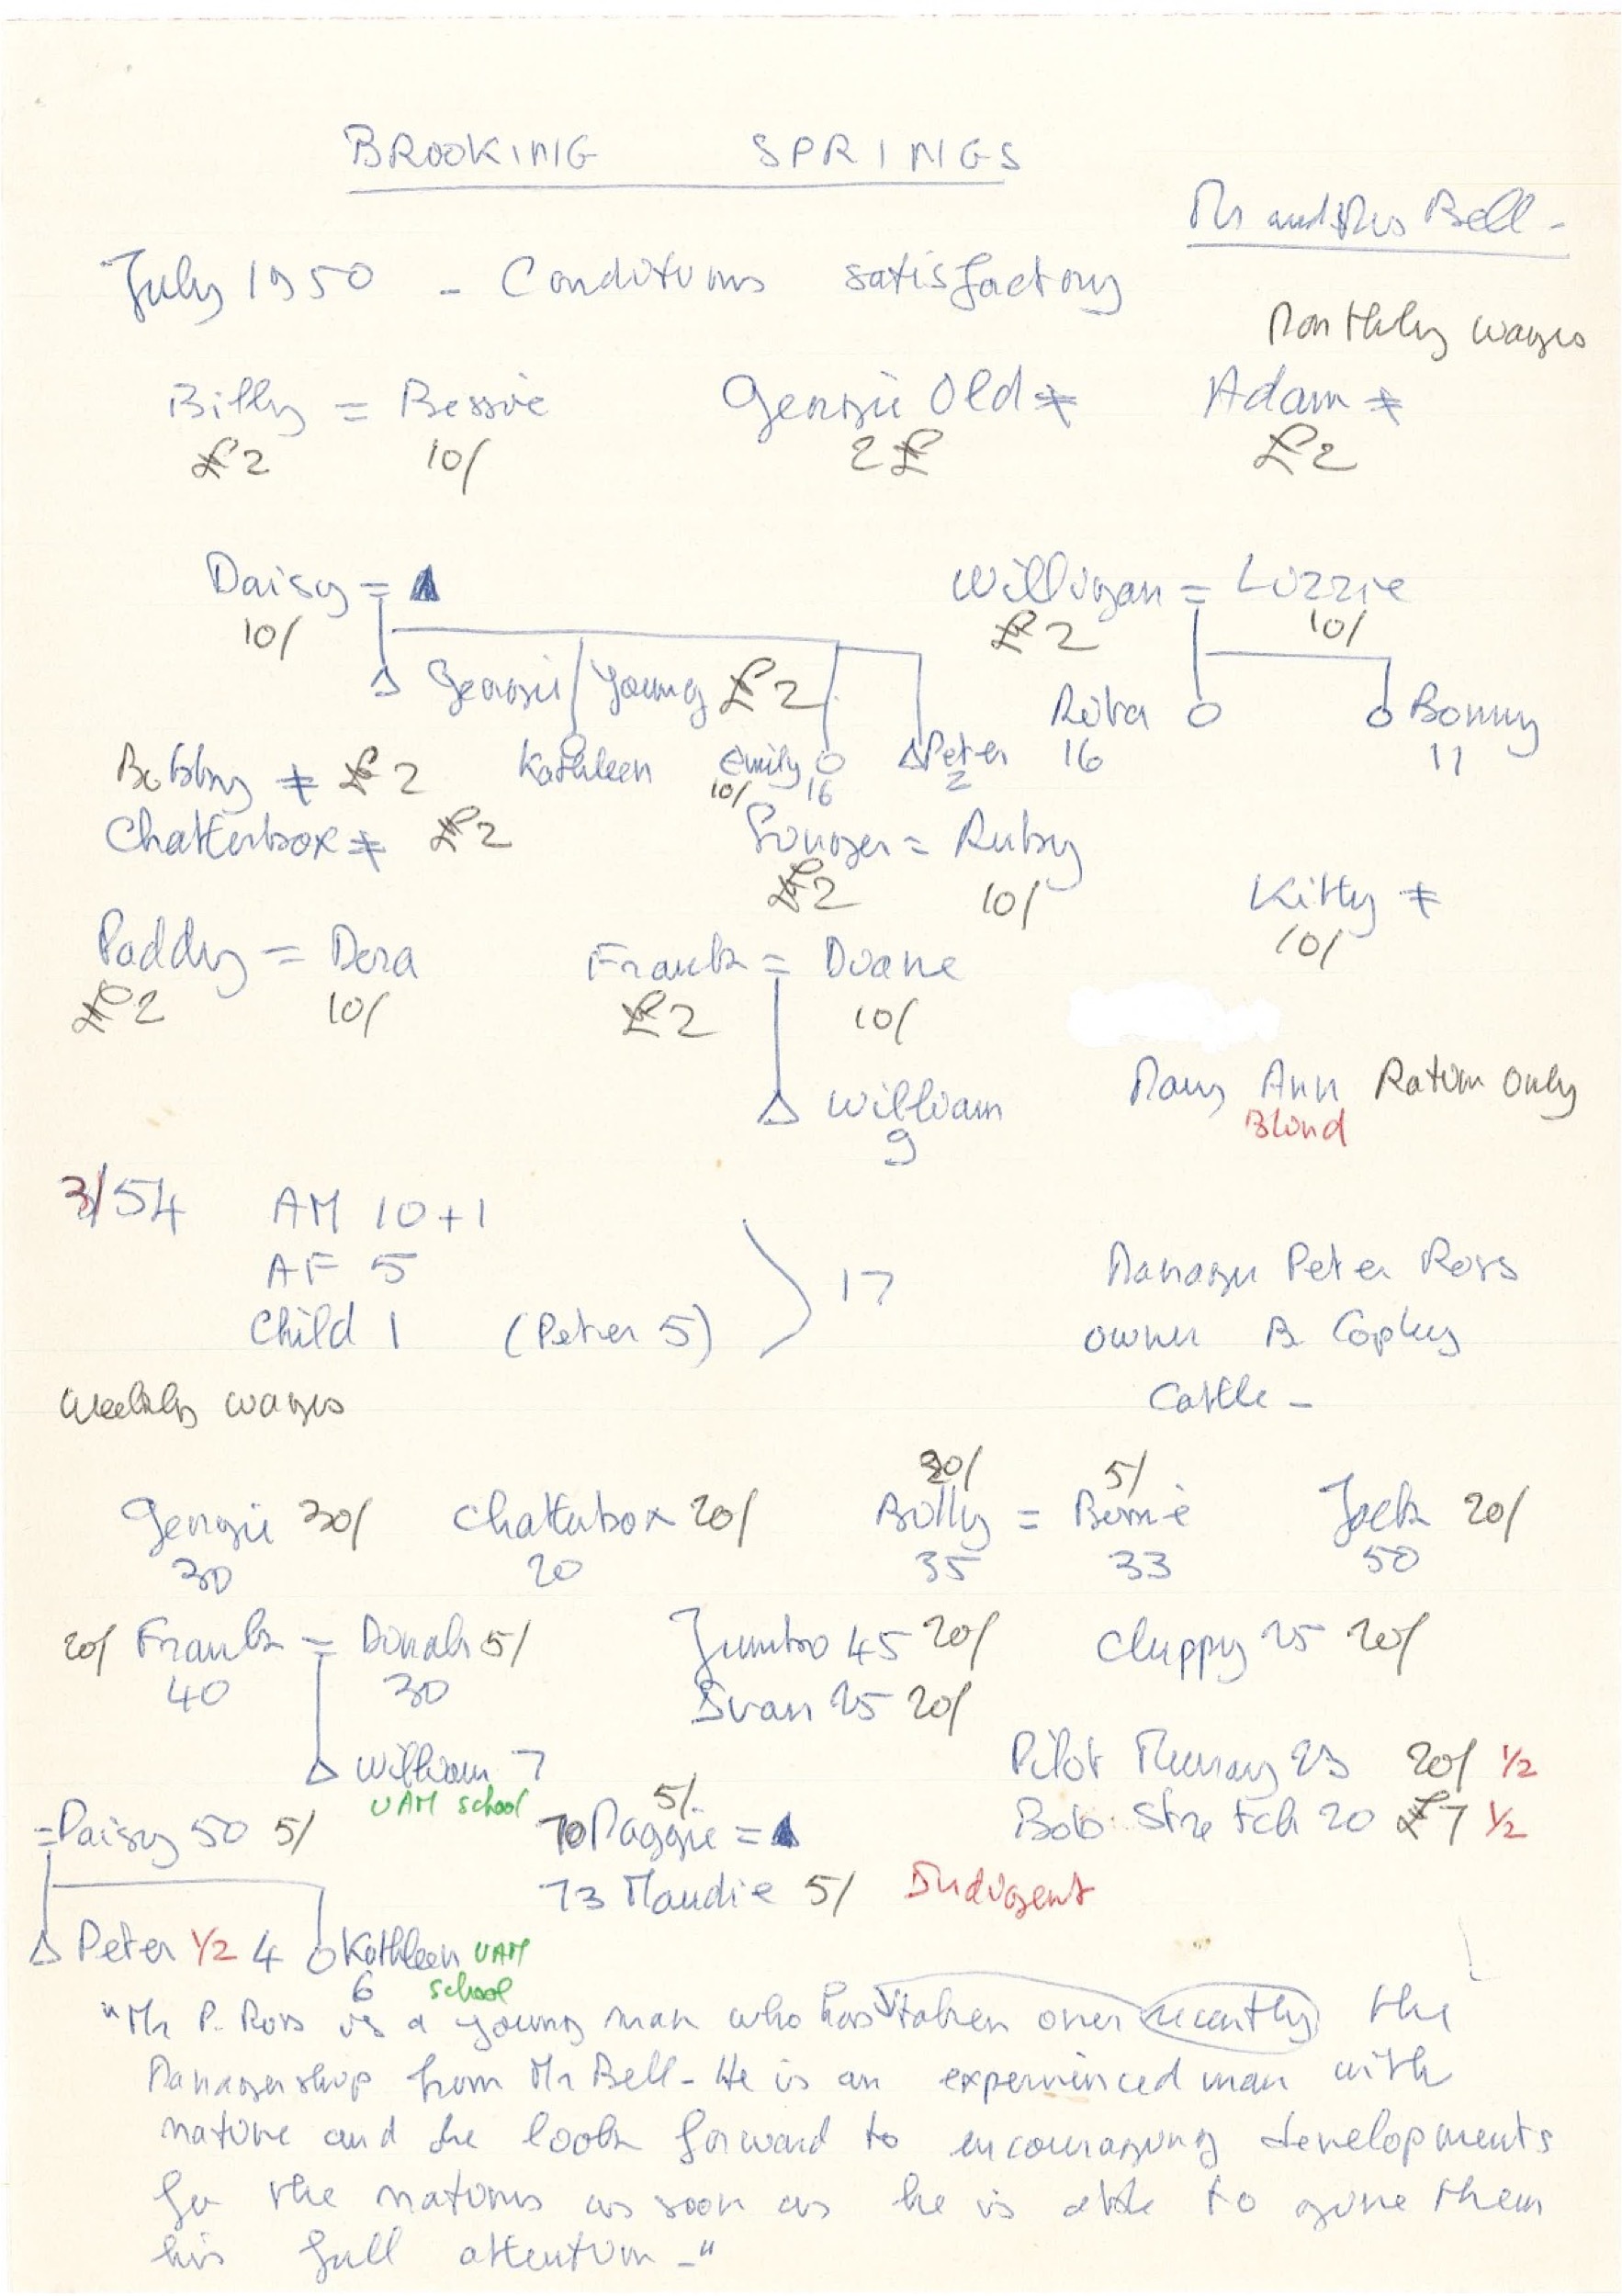 BROOKING SPRINGS
Mr and Mrs Bell -
July 1950 - Conditions satisfactory
Monthly wages
Billy = Bessie Georgie Old ≠ Adam ≠
£2 10/ 2£ £2
Daisy = ▲ Willigan = Lizzie
10/ £2 10/
△ Georgie Young £2 Rita ○ ○ Bonny
Kathleen Emily ○ △ Peter 16 11
10/ 16 2
Bobby ≠ £2
Chatterbox ≠ £2 = Ruby
£2 10/
Kitty ≠
10/
Paddy = Dora Frank = Diane
£2 10/ £2 10/
△ William
9
Mary Ann Ration Only
Blind
3/54 AM 10 + 1
AF 5
Child 1 (Peter 5) 17
Manager Peter Ross
owner B Copley
Cattle -
Weekly wages
20/ 5/
Georgie 30/ Chatterbox 20/ Billy = Bessie Jack 20/
30 20 35 33 50
20/ Frank = Dinah 5/ Jumbo 45 20/ Cluppy 25 20/
40 30 Ivan 25 20/
△ William 7
UAM school
Pilot Murray 23 20/ 1/2
Bob Stretch 20 £7 1/2
= Daisy 50 5/ 70 Maggie = ▲
5/.
73 Maudie 5/ Indigent
△ Peter 1/2 4 ○ Kathleen UAM
6 school
"Mr P. Ross is a young man who has taken over recently the
Managership from Mr Bell - He is an experienced man with
native and he look forward to encouraging developments
for the natives as soon as he is able to give them
his full attention -"